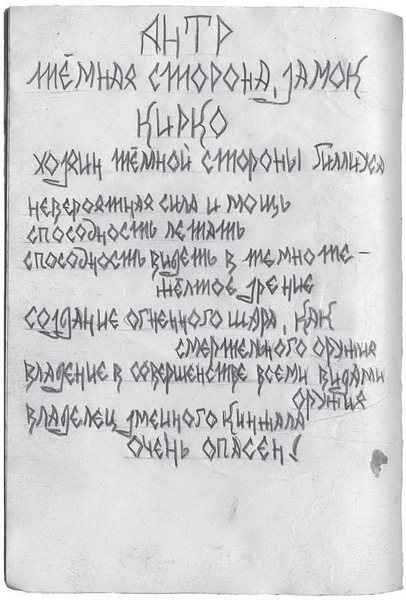 АНТР
ТЁМНАЯ СТОРОНА, ЗАМОК
КИРКО
ХОЗЯИН ТЁМНОЙ СТОРОНЫ Гиллиуса
НЕВЕРОЯТНАЯ СИЛА И МОЩЬ
СПОСОБНОСТЬ ЛЕТАТЬ
СПОСОБНОСТЬ ВИДЕТЬ В ТЕМНОТЕ –
ЖЁЛТОЕ ЗРЕНИЕ
СОЗДАНИЕ ОГНЕННОГО ШАРА, КАК
СМЕРТЕЛЬНОГО ОРУЖИЯ
ВЛАДЕНИЕ В СОВЕРШЕНСТВЕ ВСЕМИ ВИДАМИ
ОРУЖИЯ
ВЛАДЕЛЕЦ ЗМЕИНОГО КИНЖАЛА
ОЧЕНЬ ОПАСЕН!